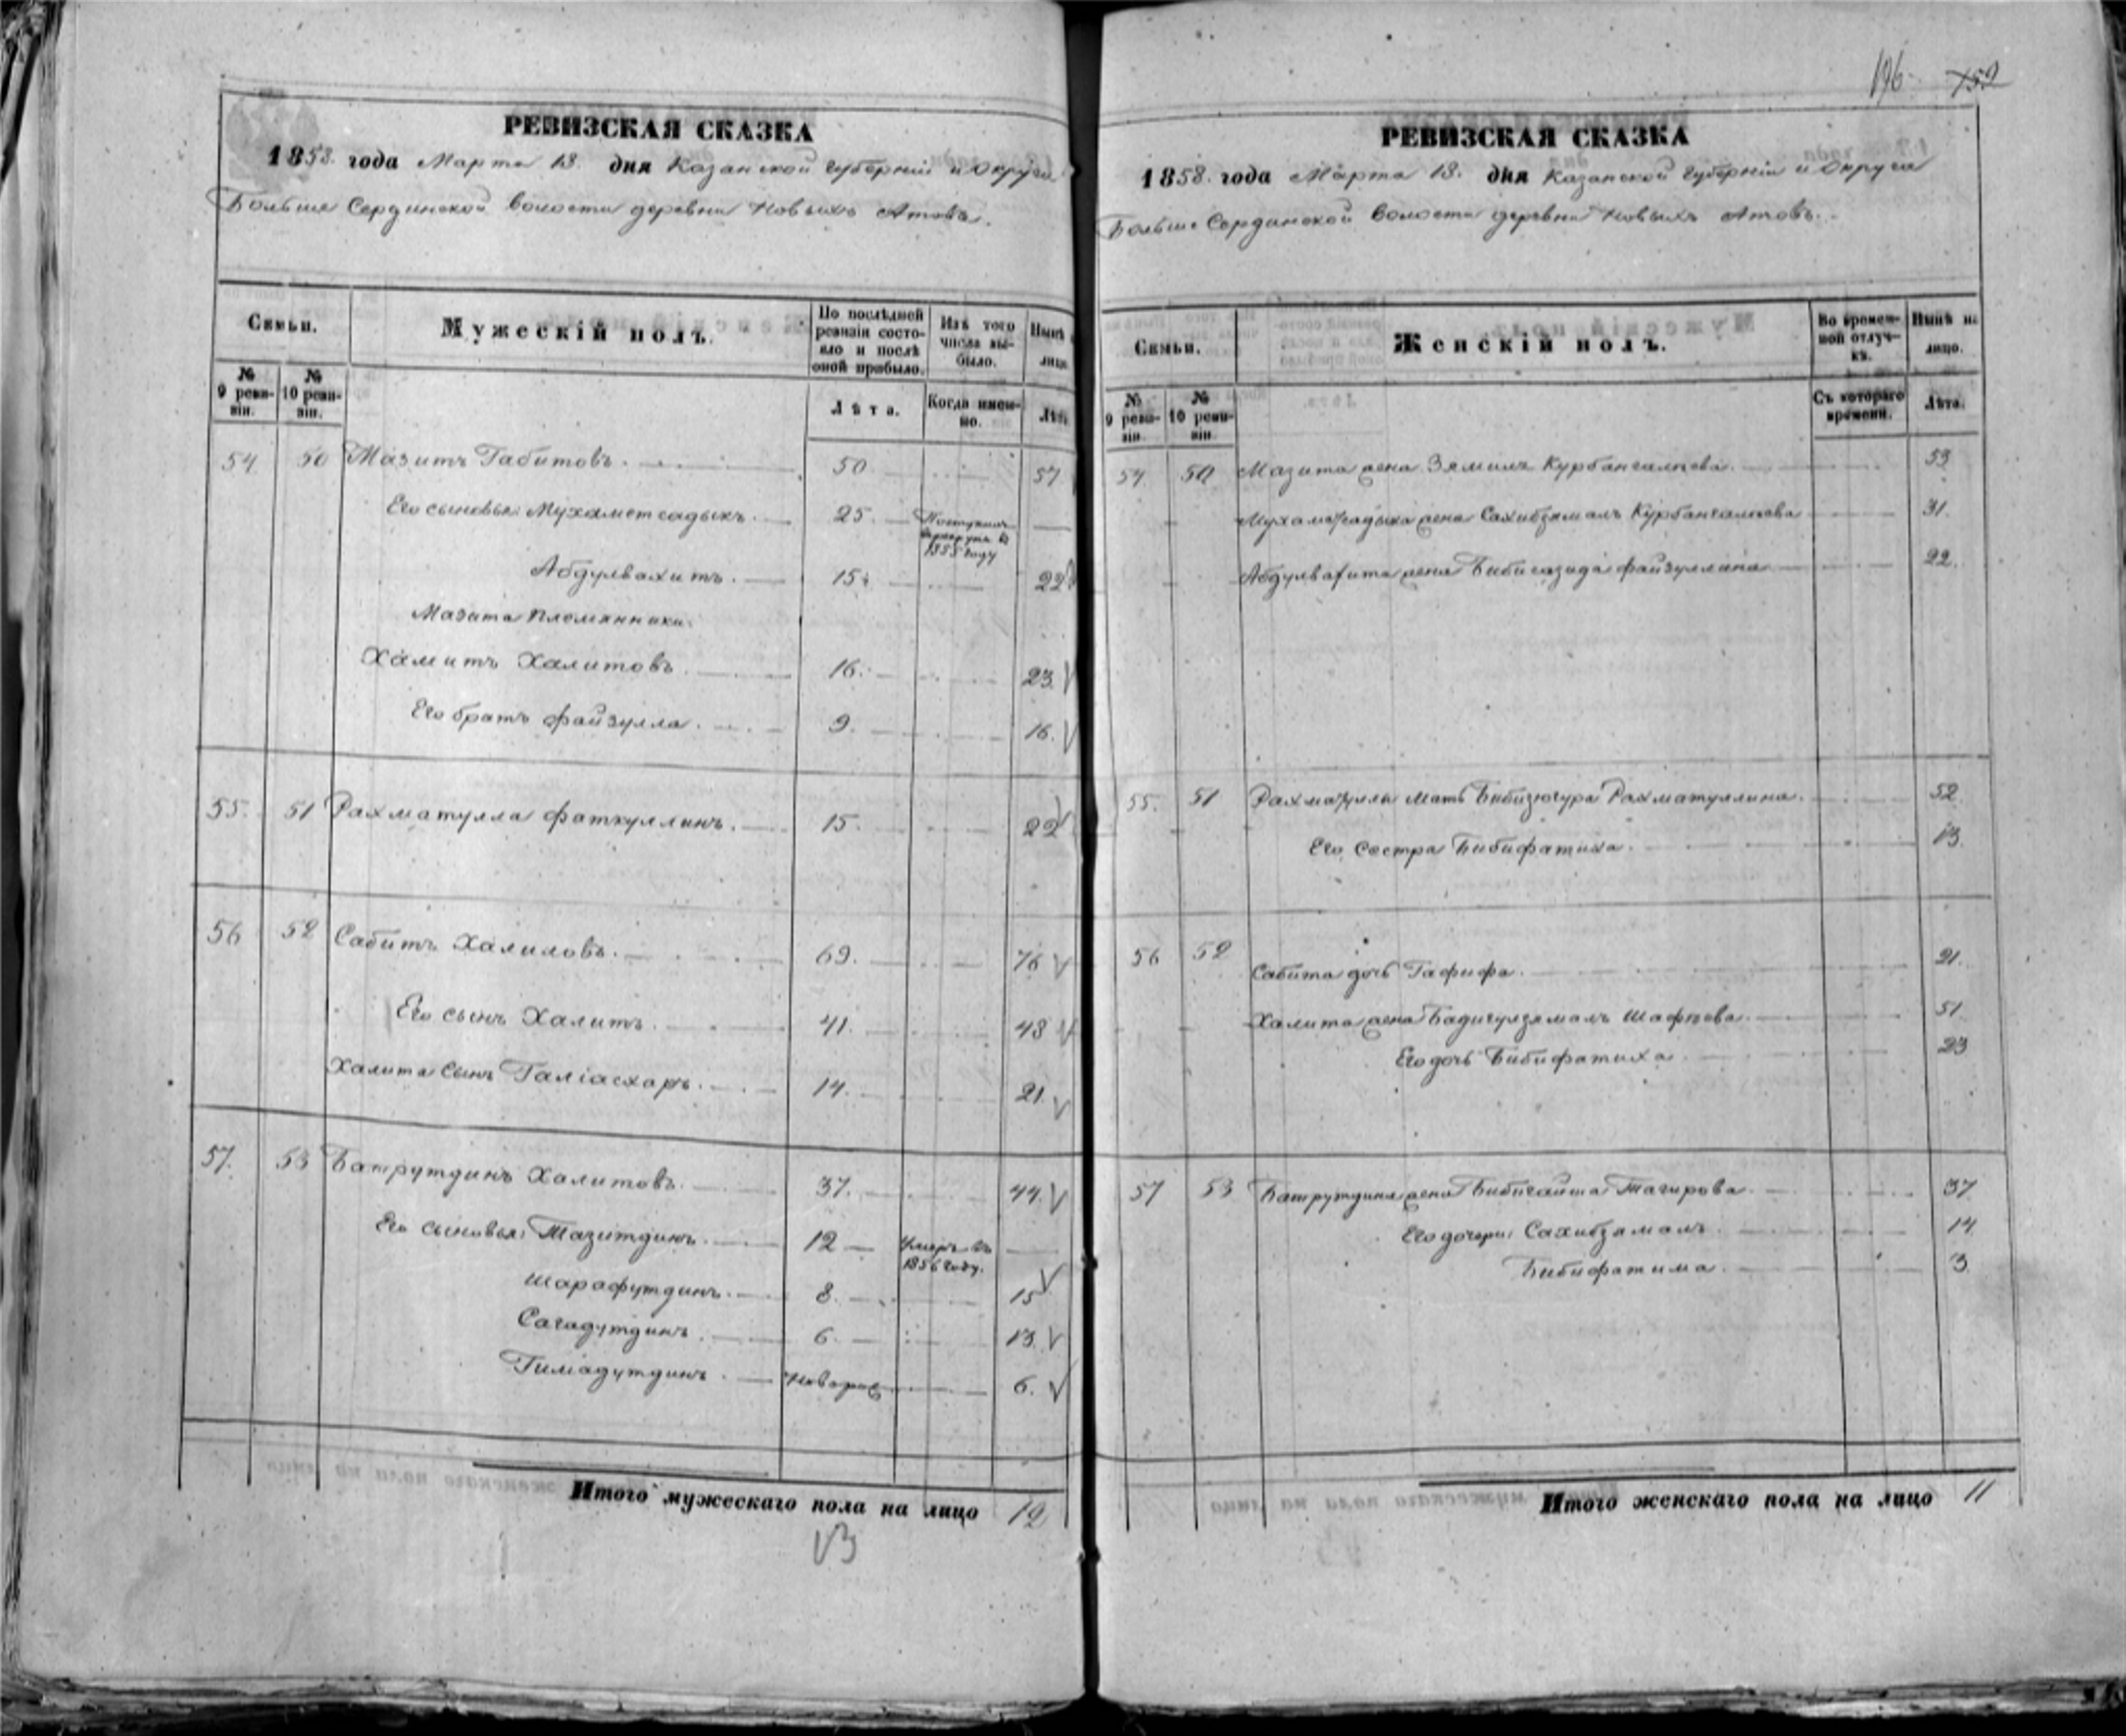 РЕВИЗСКАЯ СКАЗКА
1858. года Марта 13. дня Казанской губерніи и Округа
Больше Сердинской волости деревни Новыхъ Атовъ.
Семьи.
Мужескій полъ.
По послѣдней ревизіи состояло и послѣ оной прибыло.
Изъ того числа выбыло.
Нынѣ
лицо
№ 9 ревизіи.
№ 10 ревизіи.
Лѣта.
Когда именно.
Лѣт
54 50 Мазитъ Габитовъ. 50 57
Его сыновья: Мухаметсадыкъ. 25. Поступилъ в рекруты в 1855 году
Абдулвахитъ. 15. 22
Мазита племянники.
Хамитъ Халитовъ 16. 23
Его братъ Файзулла. 9. 16.
55. 51 Рахматулла Фаткуллинъ. 15. 22
56 52 Сабитъ Халиловъ. 69. 76
Его сынъ Халитъ. 41. 48
Халита сынъ Галіасхаръ. 14. 21.
57. 53 Батрутдинъ Халитовъ. 37. 44.
Его сыновья: Тазитдинъ. 12 Умеръ въ 1856 году.
Шарафутдинъ. 8. 15
Сагадутдинъ. 6. 13.
Гиміадутдинъ. новорож 6.
Итого мужескаго пола на лицо 12
13
196 152
РЕВИЗСКАЯ СКАЗКА
1858. года Марта 13. дня Казанской губерніи и Округа
Больше Сердинской волости деревни Новыхъ Атовъ.
Семьи.
Женскій полъ.
Во временной отлучкѣ.
Нынѣ на лицо.
№ 9 ревизіи
№ 10 ревизіи
Съ котораго времени.
Лѣта.
54. 50 Мазита жена Зямиль Курбангаліева. 53
Мухаметсадыка жена Сахибзямалъ Курбангаліева 31.
Абдулвахита жена Бибисазида Файзуллина 22.
55. 51 Рахматуллы мать Бибизюгура Рахматуллина. 52.
Его сестра Бибифатиха. 13.
56 52 Сабита дочь Гафифа. 21.
Халита жена Бадигулзямалъ Шафѣева. 51.
Его дочь Бибифатиха 23
57 53 Батрутдина жена Бибигайша Тагирова 37
Его дочери: Сахибзямалъ. 14.
Бибифатима. 3.
Итого женскаго пола на лицо 11